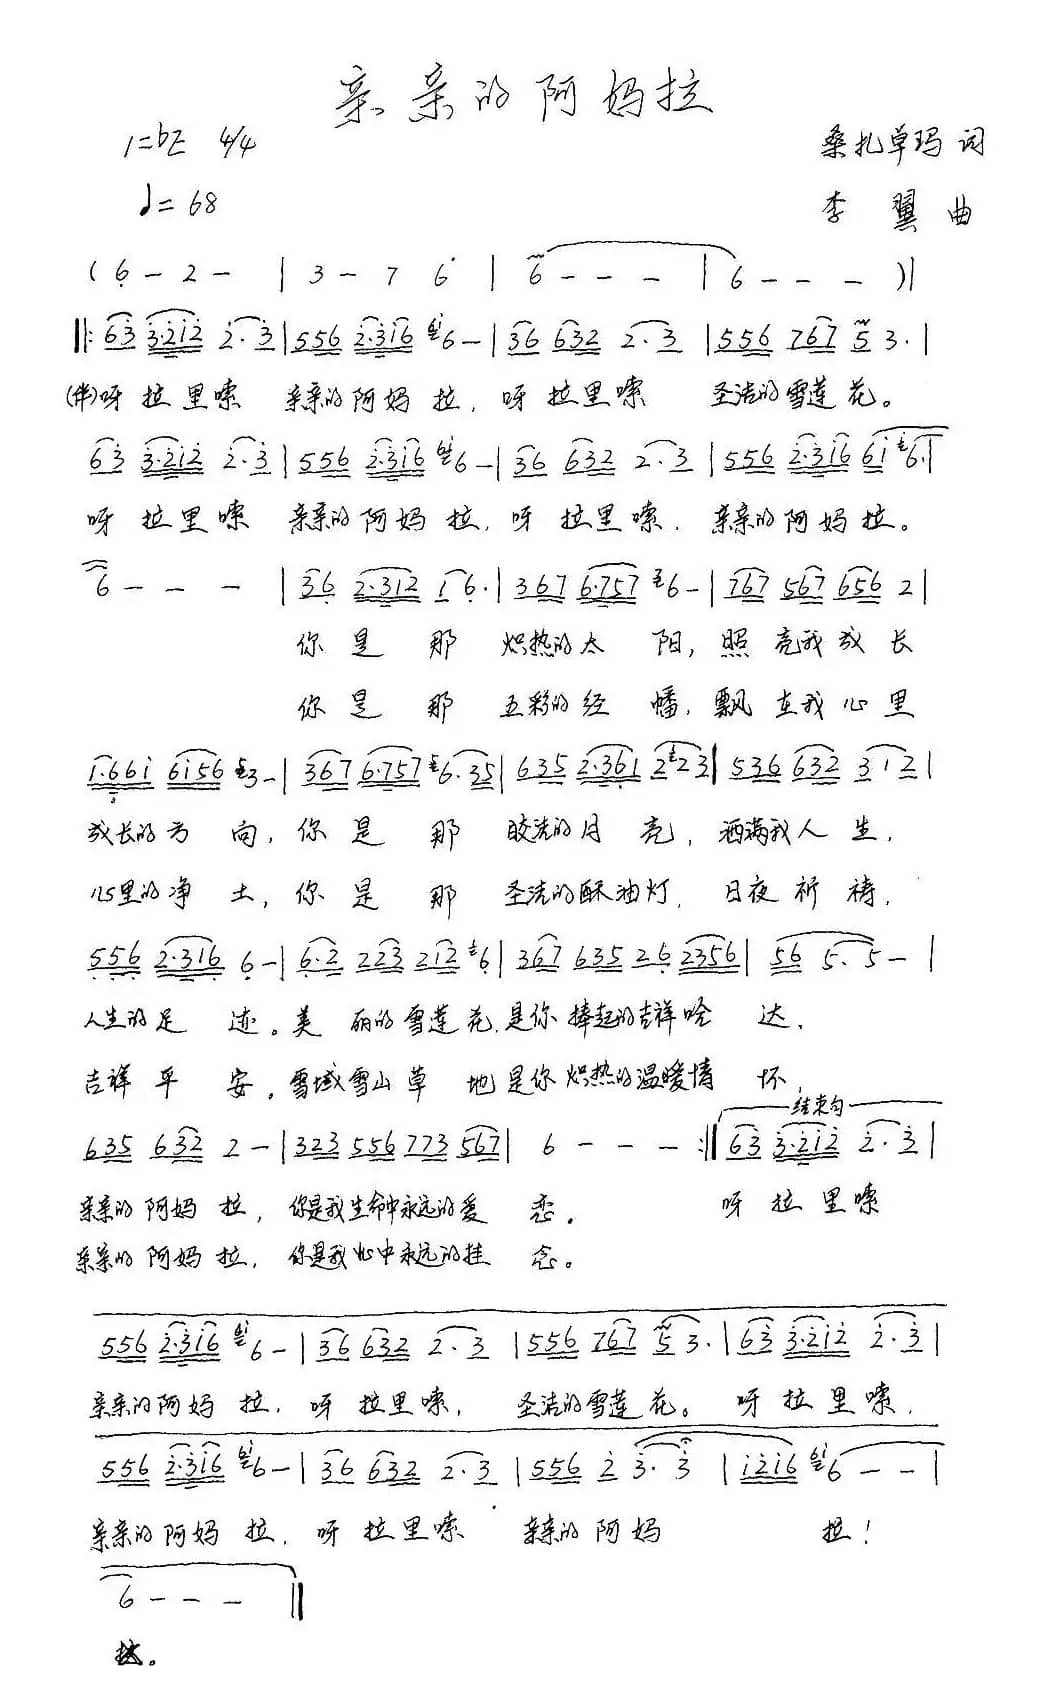 亲亲的阿妈拉
1=bE 4/4
桑扎卓玛 词
♩=68
李翼 曲
( 6 - 2 - | 3 - 7 6 | 6 - - - | 6 - - - )|
‖: 63 3·212 2·3 | 556 2·316 6 - | 36 632 2·3 | 556 767 5 3· |
(伴)呀拉里嗦 亲亲的阿妈拉，呀拉里嗦 圣洁的雪莲花。
63 3·212 2·3 | 556 2·316 6 - | 36 632 2·3 | 556 2·316 61 6· |
呀拉里嗦 亲亲的阿妈拉，呀拉里嗦，亲亲的阿妈拉。
6 - - - | 36 2·312 16· | 367 6·757 6 - | 767 567 656 2 |
你是那炽热的太阳，照亮我成长
你是那五彩的经幡，飘在我心里
1·661 6156 3 - | 367 6·757 6·35 | 635 2·361 223 | 536 632 312 |
成长的方向，你是那皎洁的月亮，洒满我人生，
心里的净土，你是那圣洁的酥油灯，日夜祈祷，
556 2·316 6 - | 6·2 223 212 6 | 367 635 26 2356 | 56 5·5 - |
人生的足迹。美丽的雪莲花，是你捧起的吉祥哈达，
吉祥平安。雪域雪山草地是你炽热的温暖情怀，
结束句
635 632 2 - | 323 556 773 567 | 6 - - - :‖ 63 3·212 2·3 |
亲亲的阿妈拉，你是我生命中永远的爱恋。 呀拉里嗦
亲亲的阿妈拉，你是我心中永远的挂念。
556 2·316 6 - | 36 632 2·3 | 556 767 5 3· | 63 3·212 2·3 |
亲亲的阿妈拉，呀拉里嗦，圣洁的雪莲花。呀拉里嗦，
556 2·316 6 - | 36 632 2·3 | 556 2 3·3 | 1216 6 - - |
亲亲的阿妈拉，呀拉里嗦 亲亲的阿妈 拉！
6 - - - ‖
拉。